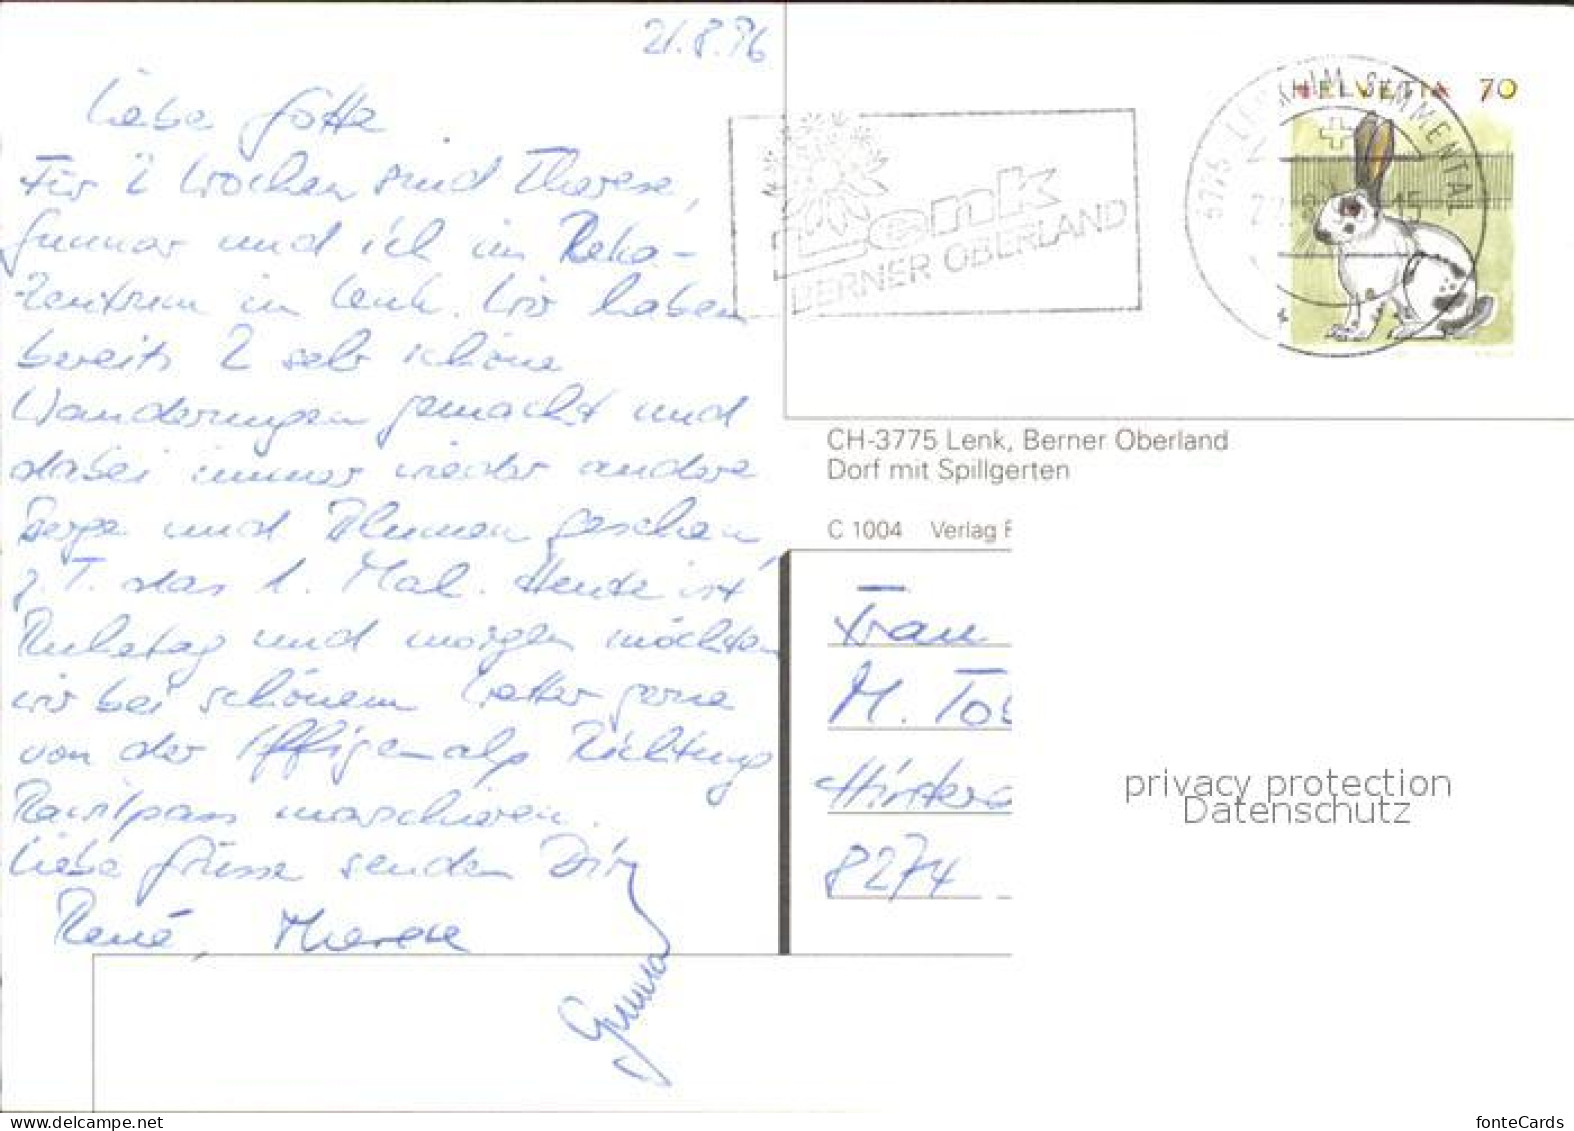 21.8.96
Liebe Gotte
Für 2 Wochen sind Therese,
Gunnar und ich im Reka-
Zentrum in Lenk. Wir haben
bereits 2 sehr schöne
Wanderungen gemacht und
dabei immer wieder andere
Berge und Blumen gesehen,
z.T. das 1. Mal. Heute ist
Ruhetag und morgen möchten
wir bei schönem Wetter gerne
von der Iffigenalp Richtung
Rawilpass marschieren.
Liebe Grüsse senden Dir
René, Therese
Gunnar
Lenk
BERNER OBERLAND
3775 LENK IM SIMMENTAL
HELVETIA 70
CH-3775 Lenk, Berner Oberland
Dorf mit Spillgerten
C 1004 Verlag
Frau
M. Tob
8274
privacy protection
Datenschutz
www.delcampe.net
fonteCards